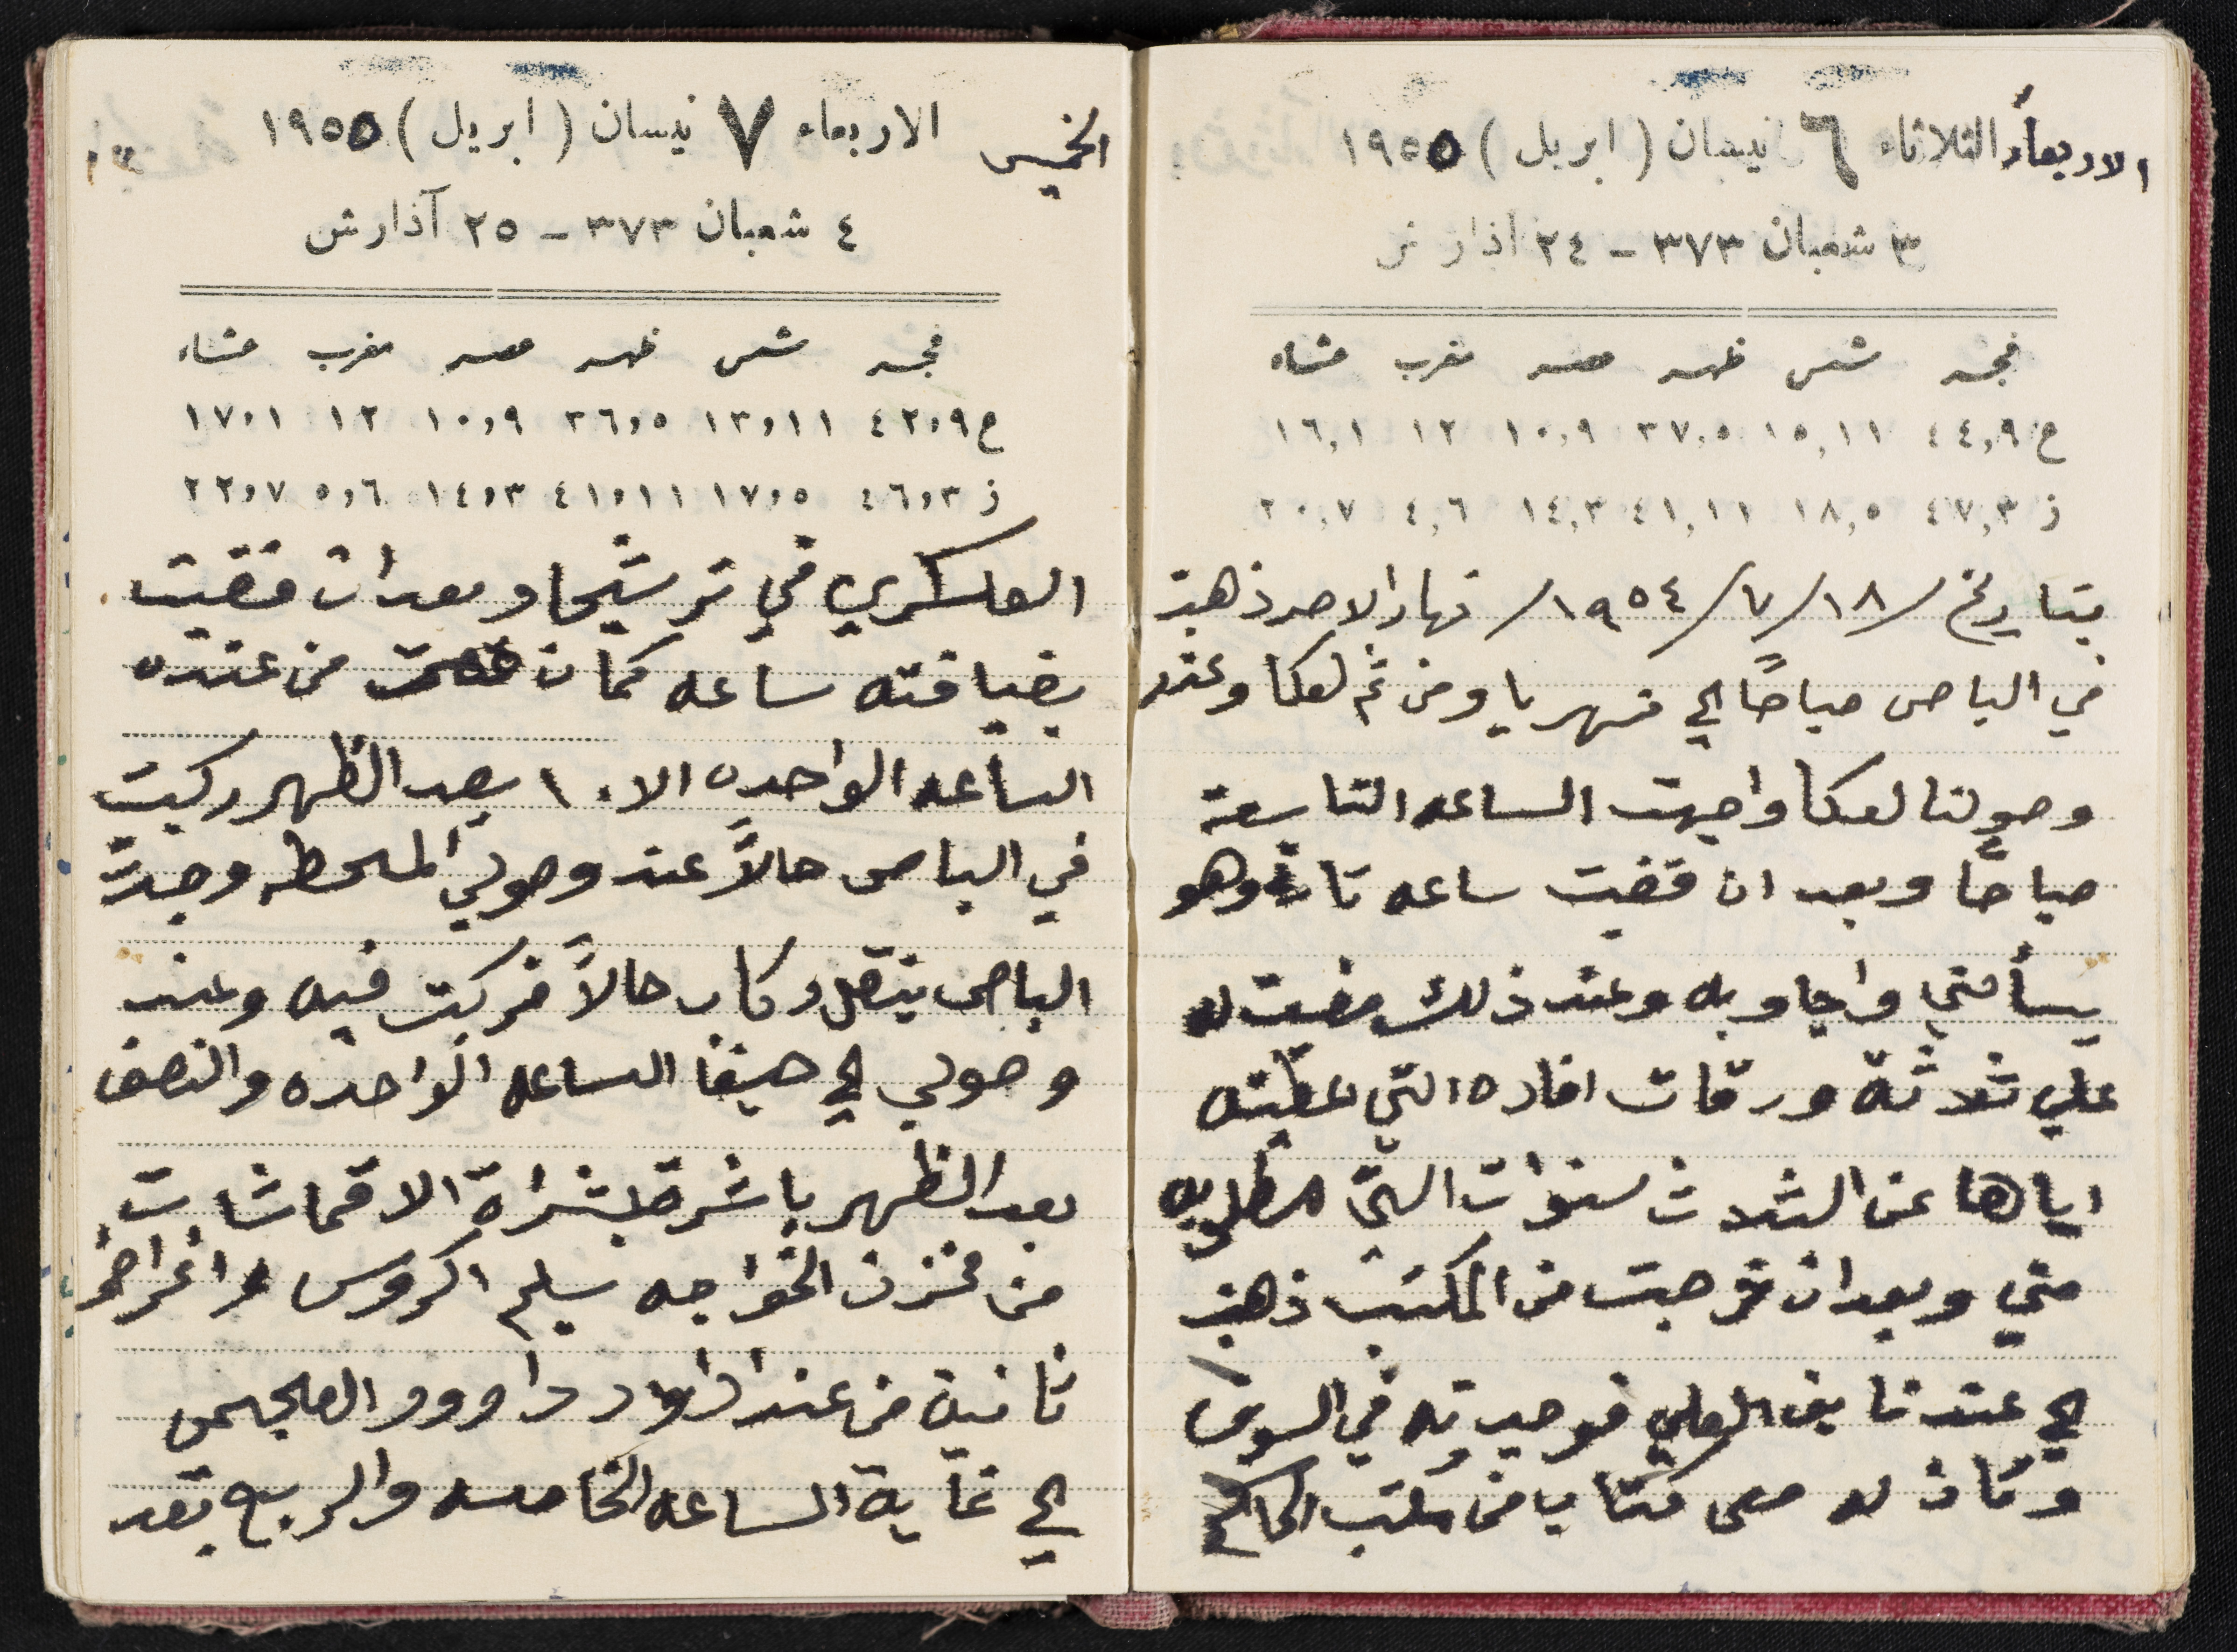 الاربعاء الثلاثاء ٦ نيسان (ابريل) ١٩٥٥
٣ شعبان ٣٧٣ - ٢٤ آذار ش
فجر شمس ظهر عصر مغرب عشاء
ع ٤٤,٩ ١٥,١١ ٣٧,٥ ١٠,٩ ١٢ ١٦,١
ز ٤٧,٣ ١٨,٥ ٤١,١١ ١٤,٣ ٤,٦ ٢٠,٧
بتاريخ /١٨/٧/١٩٥٤/ نهار الاحد ذهبت
في الباص صباحاً الى نهريا ومن ثم لعكا وعند
وصولنا لعكا واجهت الساعه التاسعة
صباحاً وبعد ان قضيت ساعه وهو
يسألني واجاوبه وعند ذلك مضيت له
على ثلاثة ورقات افاده التي عطيته
اياها عن الثلاث سنوات التي مطلوبه
مني وبعد ان خرجت من المكتب ذهبت
الى عند نايف العلي فوجدته في السوق
وكان له معي كتاب من مكتب الحاكم
الخميس الاربعاء ٧ نيسان (ابريل) ١٩٥٥
٤ شعبان ٣٧٣ - ٢٥ آذار ش
فجر شمس ظهر عصر مغرب عشاء
ع ٤٢,٩ ١٣,١١ ٣٦,٥ ١٠,٩ ١٢ ١٧,١
ز ٤٦,٣ ١٧,٥ ٤١,١١ ١٤,٣ ٥,٦ ٢٢,٧
العسكري في ترشيحا وبعد ان قضيت
بضيافته ساعه كمان من عنده
الساعه الواحده الا ١٠ بعد الظهر ركبت
في الباص حالاً عند وصولي المحطه وجدت
الباص ينقل ركاب حالاً فركبت فيه وعند
وصولي الى حيفا الساعه الواحده والنصف
بعد الظهر باشرة بشراة الاقماشات
من مخزن الخواجه سليم اكروس واغراض
ثانية من عند ادوار داوود
الى غاية الساعه الخامسه والربع بعد